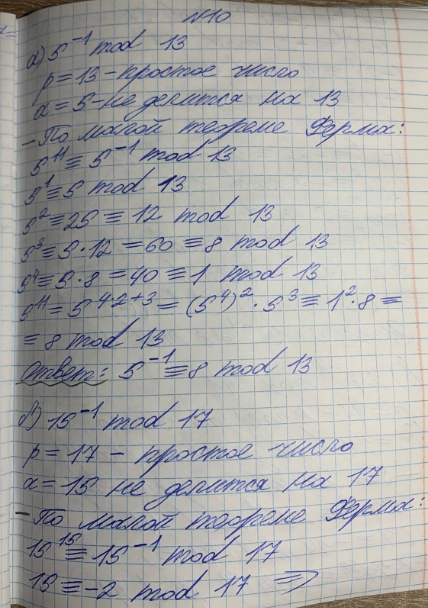 №10
а) 5⁻¹ mod 13
p = 13 - простое число
a = 5 - не делится на 13
- По малой теореме Ферма:
5¹¹ ≡ 5⁻¹ mod 13
5¹ ≡ 5 mod 13
5² ≡ 25 ≡ 12 mod 13
5³ ≡ 5 · 12 = 60 ≡ 8 mod 13
5⁴ ≡ 5 · 8 = 40 ≡ 1 mod 13
5¹¹ = 5⁴·²⁺³ = (5⁴)² · 5³ ≡ 1² · 8 =
= 8 mod 13
Ответ: 5⁻¹ ≡ 8 mod 13
б) 15⁻¹ mod 17
p = 17 - простое число
a = 15 не делится на 17
- По малой теореме Ферма:
15¹⁵ ≡ 15⁻¹ mod 17
15 ≡ -2 mod 17 ⇒